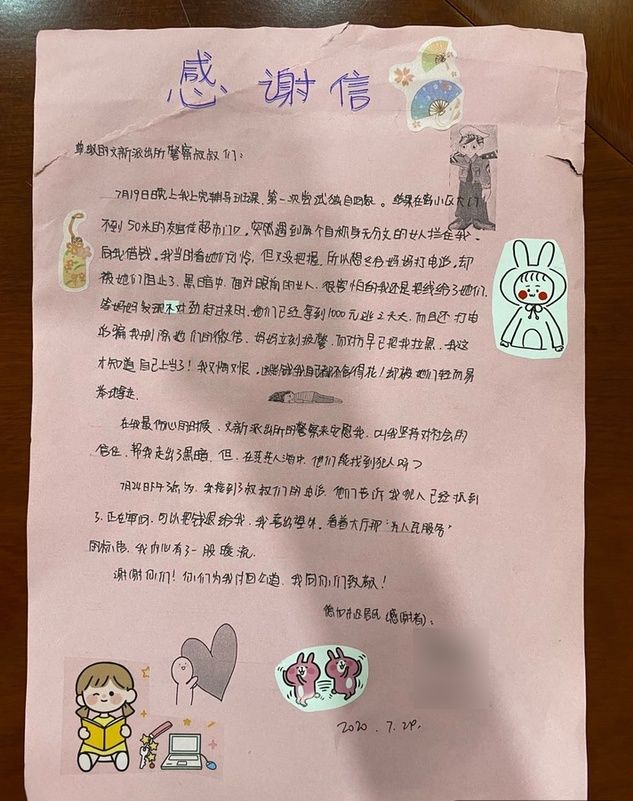 感谢信
尊敬的文新派出所警察叔叔们:
7月19日晚上我上完辅导班课,第一次尝试独自回家。结果在离小区大门
不到50米的友谊佳超市门口,突然遇到两个自称身无分文的女人拦住我,
向我借钱。我当时看她们可怜,但又没把握,所以想给妈妈打电话,却
被她们阻止了。黑暗中,面对眼前的女人,很害怕的我还是把钱给了她们。
等妈妈发现不对劲赶过来时,她们已经拿到1000元逃之夭夭,而且还打电
话骗我删除她们的微信,妈妈立刻报警,而对方早已把我拉黑,我这
才知道自己上当了!我又悔又恨,这些钱我自己都不舍得花!却被她们轻而易
举地拿走。
在我最伤心的时候,文新派出所的警察来安慰我,叫我坚持对社会的
信任,帮我走出了黑暗。但,在茫茫人海中,他们能找到犯人吗?
7月24日下午,我接到了叔叔们的电话,他们告诉我犯人已经抓到
了,正在审问,可以把钱还给我,我喜出望外。看着大厅那“为人民服务”
的标语,我内心有了一股暖流。
谢谢你们!你们为我讨回公道,我向你们致敬!
社区居民(感谢者):
2020.7.29.